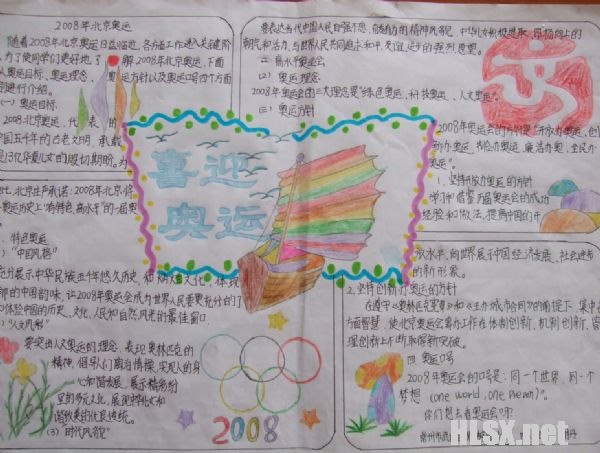 2008年北京奥运
随着2008年北京奥运日益临近,各方面工作进入关键阶
为了使同学们更好地了解2008年北京奥运,下面
奥运目标、奥运理念、奥运方针以及奥运口号四个方面
进行介绍。
(一) 奥运目标
2008年北京奥运,代表的
中国五千年的古老文明,承载
是13亿华夏儿女的殷切期盼。为
北京庄严承诺:2008年北京将
奥运历史上"有特色、高水平"的一届奥
特色奥运
"中国风格"
展示中华民族五千年悠久历史
的中国韵味,让2008年奥运会成为世界人民更充分的了
和体验中国的历史、文化、人民和自然风光的最佳窗口
"人文风彩"
要突出人文奥运的理念,表现奥林匹克的
精神,倡导人们陶冶情操,实现人的身
心和谐发展,展示精彩纷
呈的多元文化,展现
谐欢乐的优良传统。
(3)"时代风貌"
要表达当代中国人民自强不息、
朝气和活力,与世界人民共同追求和平、友谊、进步的强烈愿望。
(二) 高水平奥运会
(二) 奥运理念
2008年奥运会的三大理念是"绿色奥运、科技奥运、人文奥运"。
(三) 奥运方针
2008年奥运会的方针是"开放办奥运、创
新办奥运、节俭办奥运、廉洁办奥、全民办
1. 坚持开放办奥运的方针
学习和借鉴历届奥运会的成功
经验和做法,提高中国的开
放水平,向世界展示中国经济发展、社会进步
的新形象。
2.坚持创新办奥运的方针
在遵守《奥林匹克宪章》和《主办城市合同》的前提下,集中各
方面智慧,使北京奥运会筹办工作在体制创新、机制创新、管
理创新上不断取得新突破。
四. 奥运口号
2008年奥运会的口号是:同一个世界,同一个
梦想 (one world, one
你们想去看奥运会吗?
喜迎
奥运
2008
HLSX.net